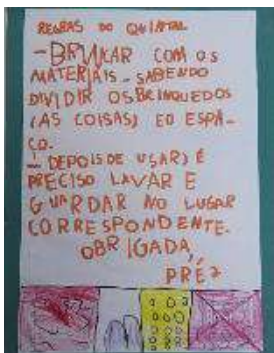 REGRAS DO QUINTAL
- BRINCAR COM OS
MATERIAIS - SABENDO
DIVIDIR OS BRINQUEDOS
(AS COISAS) E O ESPA-
ÇO.
- DEPOIS DE USAR) É
PRECISO LAVAR E
GUARDAR NO LUGAR
CORRESPONDENTE.
OBRIGADA,
PRÉ 2